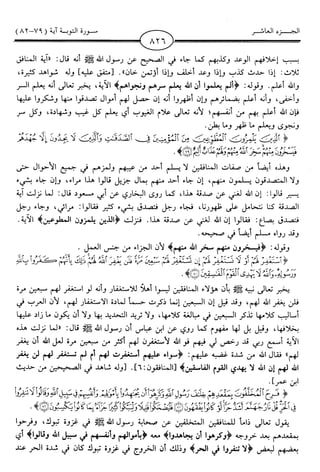 الجـــزء العاشـــر
٨٢٦
سورة التوبة آية (٧٩-٨٢)
بسبب إخلافهم الوعد وكذبهم كما جاء في الصحيح عن رسول الله ﷺ أنه قال: «آية المنافق
ثلاث: إذا حدث كذب وإذا وعد أخلف وإذا أؤتمن خان». [متفق عليه] وله شواهد كثيرة،
والله أعلم. وقوله: ﴿ألم يعلموا أن الله يعلم سرهم ونجواهم﴾ الآية، يخبر تعالى أنه يعلم السر
وأخفى، وأنه أعلم بضمائرهم وإن أظهروا أنه إن حصل لهم أموال تصدقوا منها وشكروا عليها
فإن الله أعلم بهم من أنفسهم، لأنه تعالى علام الغيوب أي يعلم كل غيب وشهادة، وكل سر
ونجوى ويعلم ما ظهر وما بطن.
﴿ الَّذِينَ يَلْمِزُونَ الْمُطَّوِّعِينَ مِنَ الْمُؤْمِنِينَ فِي الصَّدَقَاتِ وَالَّذِينَ لَا يَجِدُونَ إِلَّا جُهْدَهُمْ
فَيَسْخَرُونَ مِنْهُمْ سَخِرَ اللَّهُ مِنْهُمْ وَلَهُمْ عَذَابٌ أَلِيمٌ ﴾.
وهذه أيضاً من صفات المنافقين لا يسلم أحد من عيبهم ولمزهم في جميع الأحوال حتى
ولا المتصدقون يسلمون منهم، إن جاء أحد منهم بمال جزيل قالوا هذا مراء، وإن جاء بشيء
يسير قالوا: إن الله لغني عن صدقة هذا، كما روى البخاري عن أبي مسعود قال: لما نزلت آية
الصدقة كنا نتحامل على ظهورنا، فجاء رجل فتصدق بشيء كثير فقالوا: مرائي، وجاء رجل
فتصدق بصاع: فقالوا إن الله لغني عن صدقة هذا. فنزلت ﴿الذين يلمزون المطوعين﴾ الآية.
وقد رواه مسلم أيضاً في صحيحه.
وقوله: ﴿فيسخرون منهم سخر الله منهم﴾ لأن الجزاء من جنس العمل.
﴿ اسْتَغْفِرْ لَهُمْ أَوْ لَا تَسْتَغْفِرْ لَهُمْ إِنْ تَسْتَغْفِرْ لَهُمْ سَبْعِينَ مَرَّةً فَلَنْ يَغْفِرَ اللَّهُ لَهُمْ ذَلِكَ بِأَنَّهُمْ كَفَرُوا بِاللَّهِ
وَرَسُولِهِ وَاللَّهُ لَا يَهْدِي الْقَوْمَ الْفَاسِقِينَ ﴾.
يخبر تعالى نبيه ﷺ بأن هؤلاء المنافقين ليسوا أهلاً للاستغفار وأنه لو استغفر لهم سبعين مرة
فلن يغفر الله لهم، وقد قيل إن السبعين إنما ذكرت حسماً لمادة الاستغفار لهم، لأن العرب في
أساليب كلامها تذكر السبعين في مبالغة كلامها، ولا تريد التحديد بها ولا أن يكون ما زاد عليها
بخلافها، وقيل بل لها مفهوم كما روي عن ابن عباس أن رسول الله ﷺ قال: «لما نزلت هذه
الآية أسمع ربي قد رخص لي فيهم فو الله لأستغفرن لهم أكثر من سبعين مرة لعل الله أن يغفر
لهم» فقال الله من شدة غضبه عليهم: ﴿سواء عليهم أستغفرت لهم أم لم تستغفر لهم لن يغفر
الله لهم إن الله لا يهدي القوم الفاسقين﴾ [المنافقون:٦]. [وله شاهد في الصحيحين من حديث
ابن عمر].
﴿ فَرِحَ الْمُخَلَّفُونَ بِمَقْعَدِهِمْ خِلَافَ رَسُولِ اللَّهِ وَكَرِهُوا أَنْ يُجَاهِدُوا بِأَمْوَالِهِمْ وَأَنْفُسِهِمْ فِي سَبِيلِ اللَّهِ وَقَالُوا لَا تَنْفِرُوا
فِي الْحَرِّ قُلْ نَارُ جَهَنَّمَ أَشَدُّ حَرًّا لَوْ كَانُوا يَفْقَهُونَ ۝ فَلْيَضْحَكُوا قَلِيلًا وَلْيَبْكُوا كَثِيرًا جَزَاءً بِمَا كَانُوا يَكْسِبُونَ ﴾.
يقول تعالى ذاماً للمنافقين المتخلفين عن صحابة رسول الله ﷺ في غزوة تبوك، وفرحوا
بمقعدهم بعد خروجه ﴿وكرهوا أن يجاهدوا﴾ معه ﴿بأموالهم وأنفسهم في سبيل الله وقالوا﴾ أي
بعضهم لبعض ﴿لا تنفروا في الحر﴾ وذلك أن الخروج في غزوة تبوك كان في شدة الحر عند